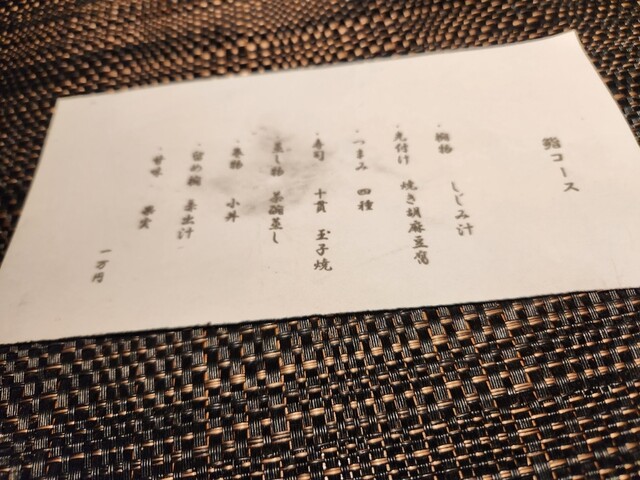 鮨コース
・椀物 しじみ汁
・先付け 焼き胡麻豆腐
・つまみ 四種
・寿司 十貫 玉子焼
・蒸し物 茶碗蒸し
・食物 小丼
・留め椀 赤出汁
・甘味 果実
一万円